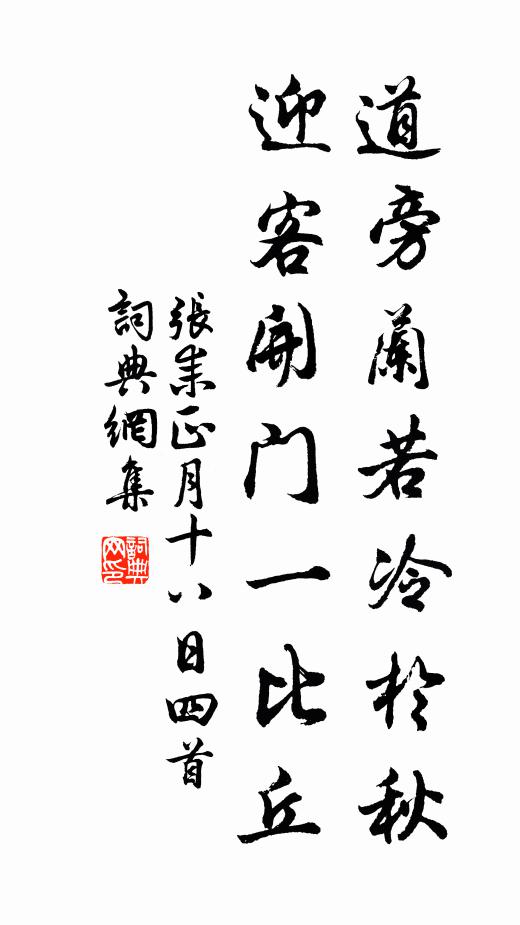 道旁蘭若冷於秋
迎客開門一比丘
張耒正月十八日四首
詞典網集
詞典網印